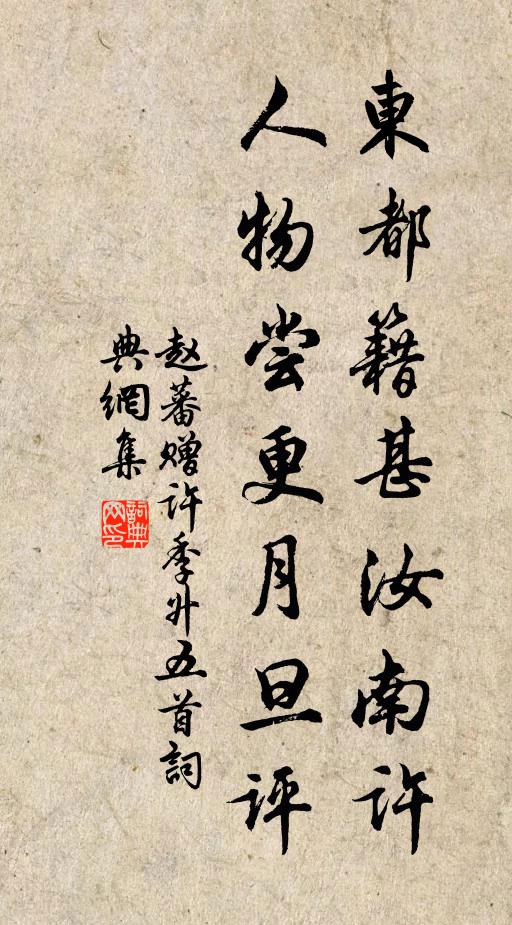 東都籍甚汝南許
人物尝更月旦評
赵蕃赠许季升五首詞
典網集
詞典网印